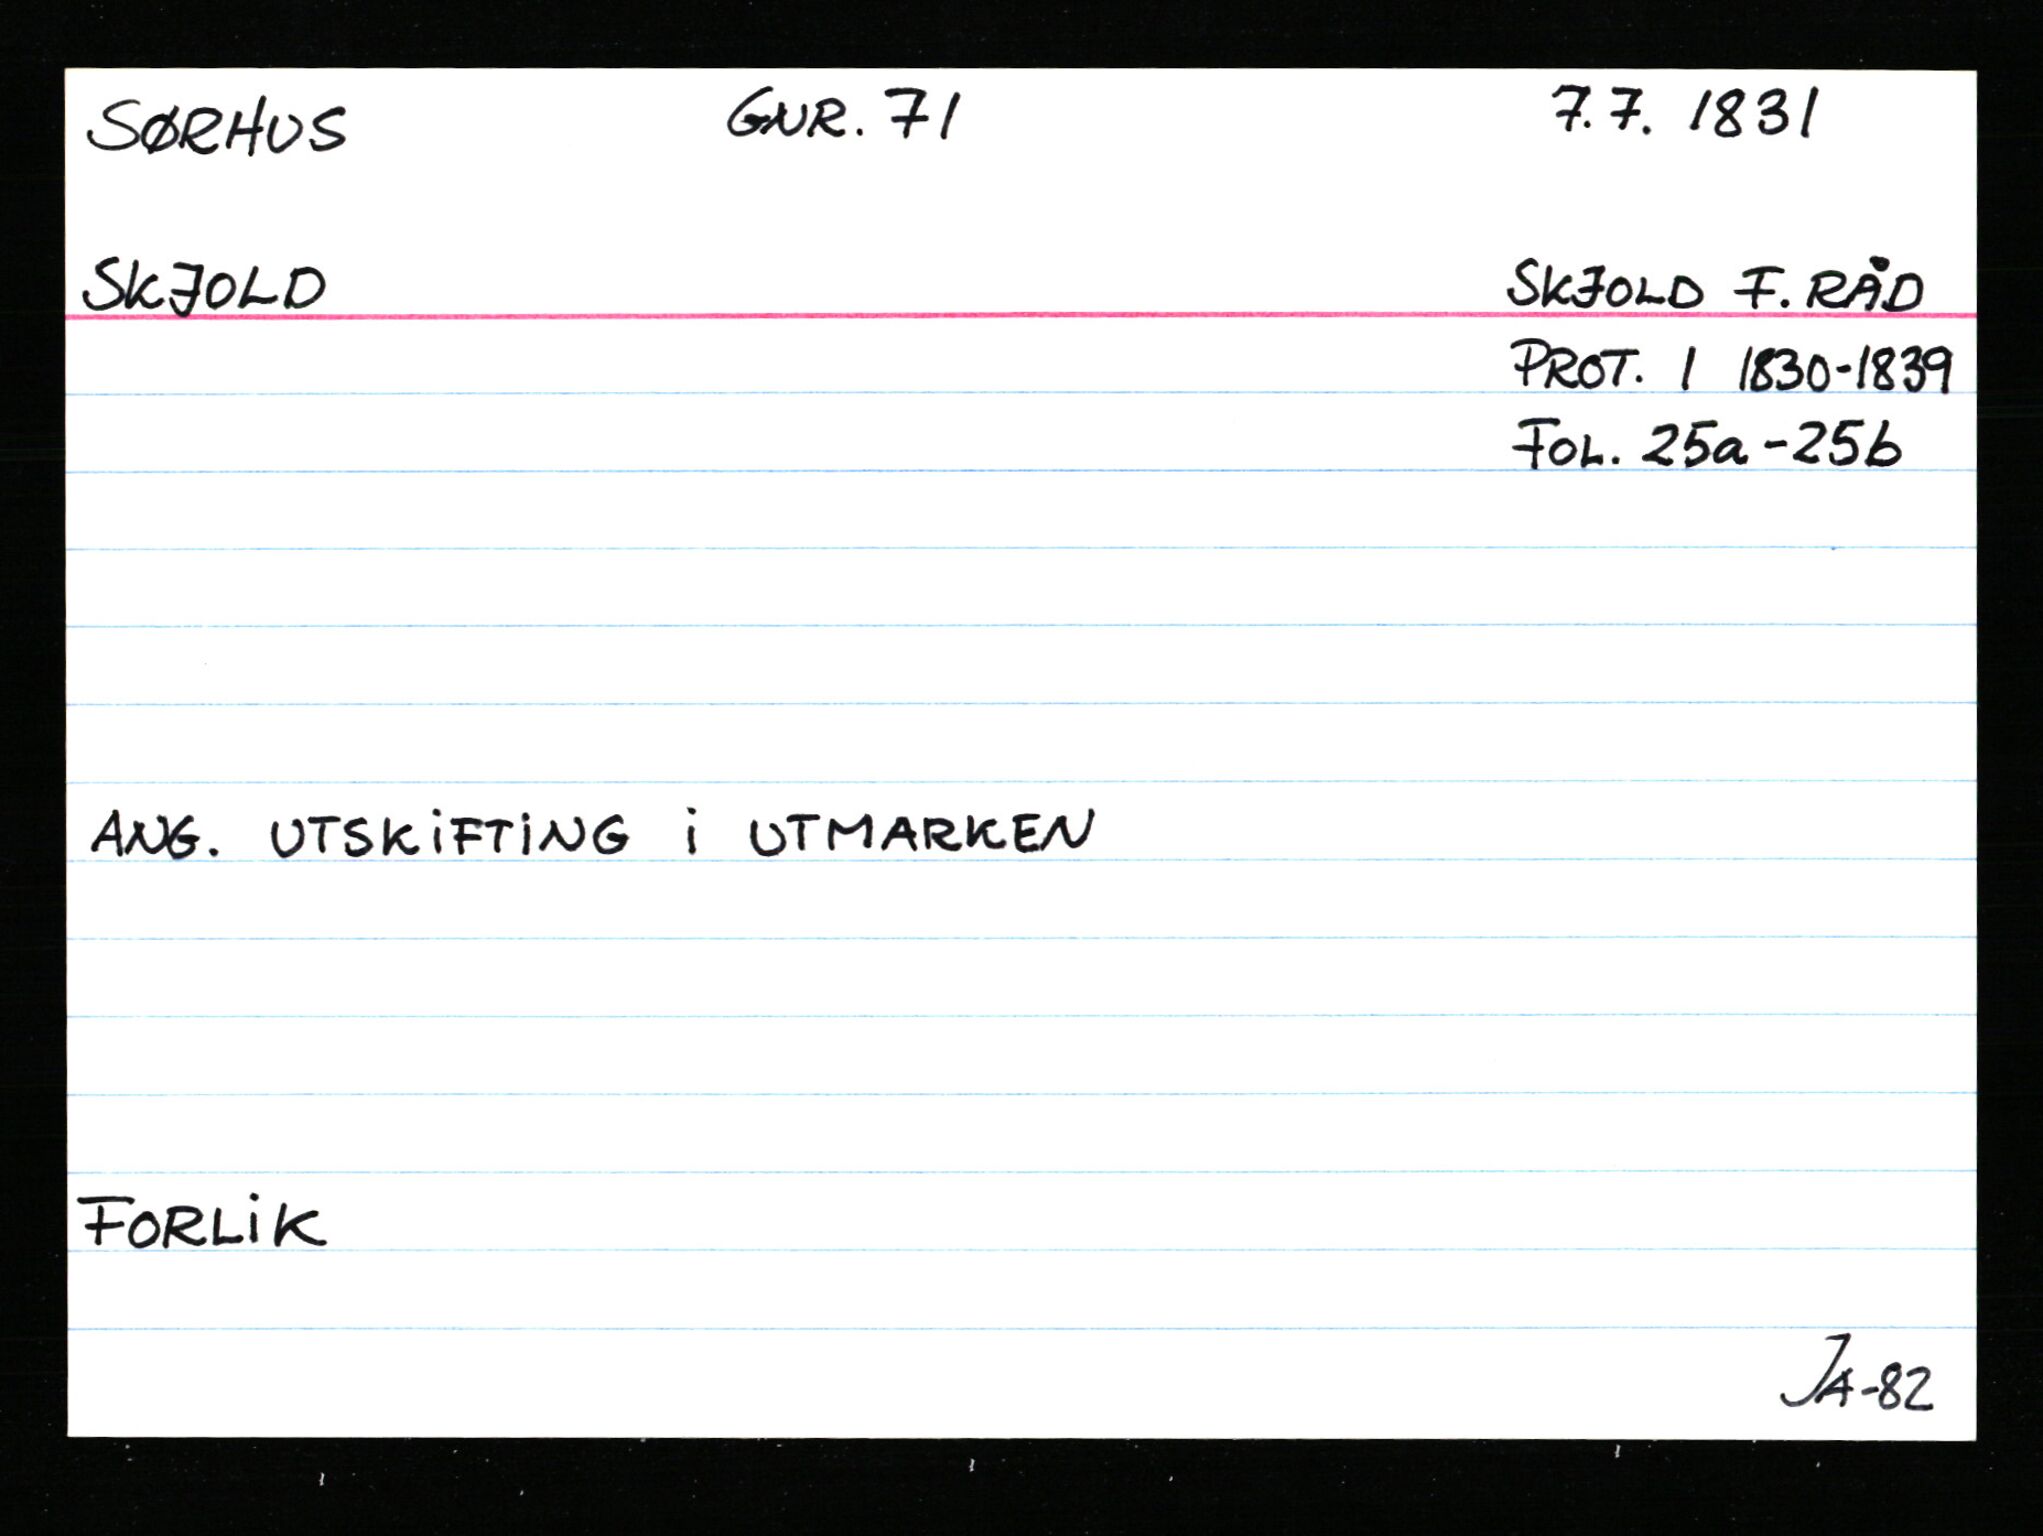 SØRHUS GNR. 71 7.7. 1831
SKJOLD SKJOLD F. RÅD
PROT. 1 1830-1839
FOL. 25a-25b
ANG. UTSKIFTING I UTMARKEN
FORLIK
JA-82